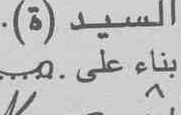 السيد (ة).
بناء على